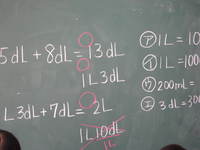 5dL+8dL=13dL
1L3dL
1L3dL+7dL=2L
1L10dL
1L
㋐ 1L=10
㋑ 1L=100
㋒ 200mL=
㋓ 3dL=300